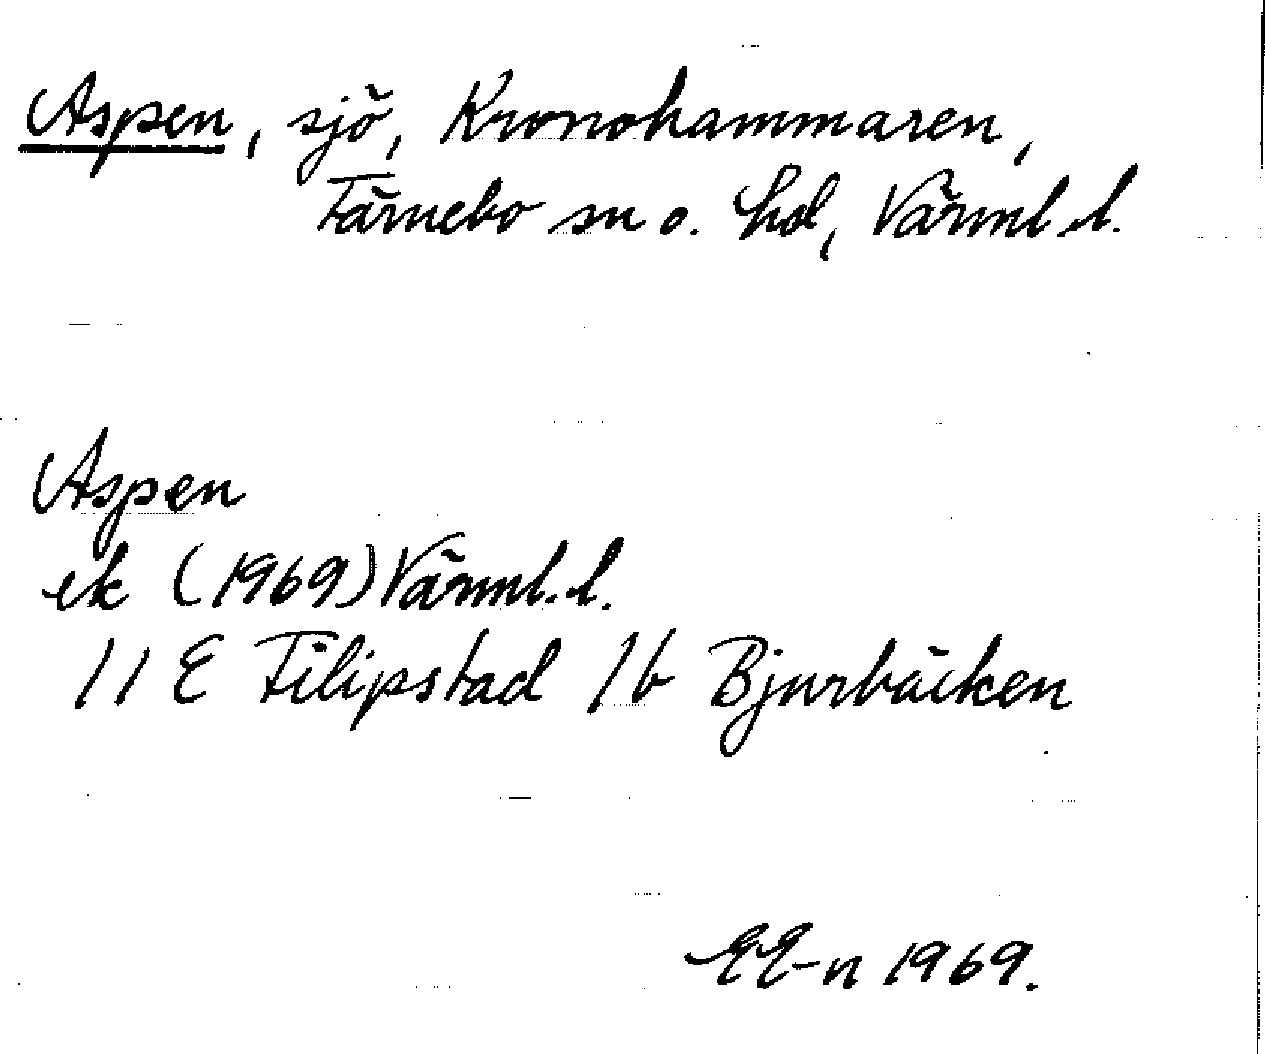 Aspen, sjö, Kronohammaren,
Färnebo sn o. hd, Värml. l.
Aspen
ek (1969) Värml. l.
11 E Filipstad 1b Bjurbäcken
EE-n 1969.